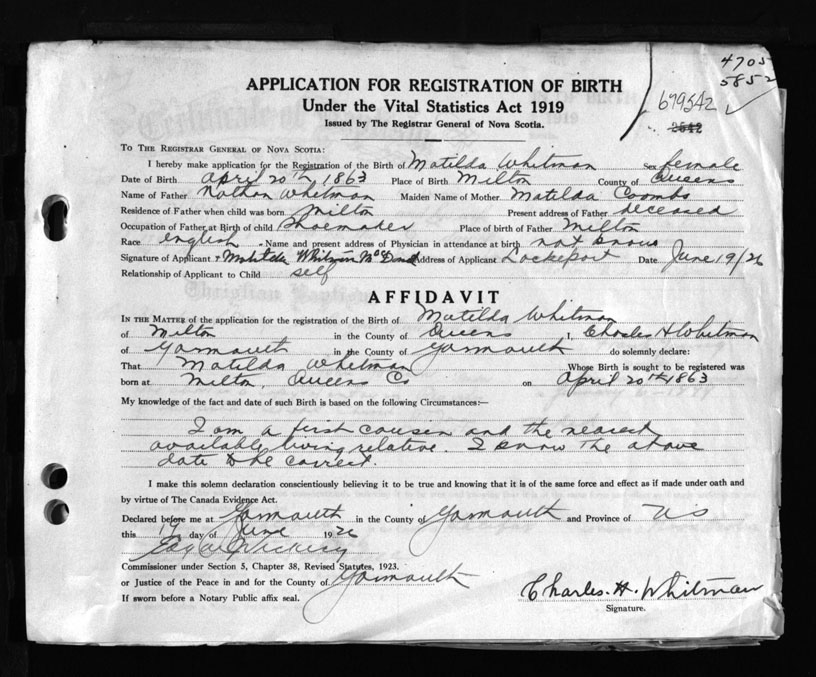 4705
5852
699542 ✓
2542
APPLICATION FOR REGISTRATION OF BIRTH
Under the Vital Statistics Act 1919
Issued by The Registrar General of Nova Scotia.
TO THE REGISTRAR GENERAL OF NOVA SCOTIA:
I hereby make application for the Registration of the Birth of Matilda Whitman Sex female
Date of Birth April 20th 1863 Place of Birth Milton County of Queens
Name of Father Nathan Whitman Maiden Name of Mother Matilda Coombs
Residence of Father when child was born Milton Present address of Father deceased
Occupation of Father at Birth of child Shoemader Place of birth of Father Milton
Race English Name and present address of Physician in attendance at birth not know
Signature of Applicant Matilda Whitman Address of Applicant Lockeport Date June 19/26
Relationship of Applicant to Child self
AFFIDAVIT
IN THE MATTER of the application for the registration of the Birth of Matilda Whitman
of Milton in the County of Queens I, Charles H Whitman
of Yarmouth in the County of Yarmouth do solemnly declare:
That Matilda Whitman Whose Birth is sought to be registered was
born at Milton, Queens Co on April 20th 1863
My knowledge of the fact and date of such Birth is based on the following Circumstances:—
I am a first cousin and the nearest
available living relative. I know the above
date to be correct.
I make this solemn declaration conscientiously believing it to be true and knowing that it is of the same force and effect as if made under oath and
by virtue of The Canada Evidence Act.
Declared before me at Yarmouth in the County of Yarmouth and Province of N S
this day of June 1926
Commissioner under Section 5, Chapter 38, Revised Statutes, 1923.
or Justice of the Peace in and for the County of Yarmouth
If sworn before a Notary Public affix seal.
Charles. H. Whitman
Signature.